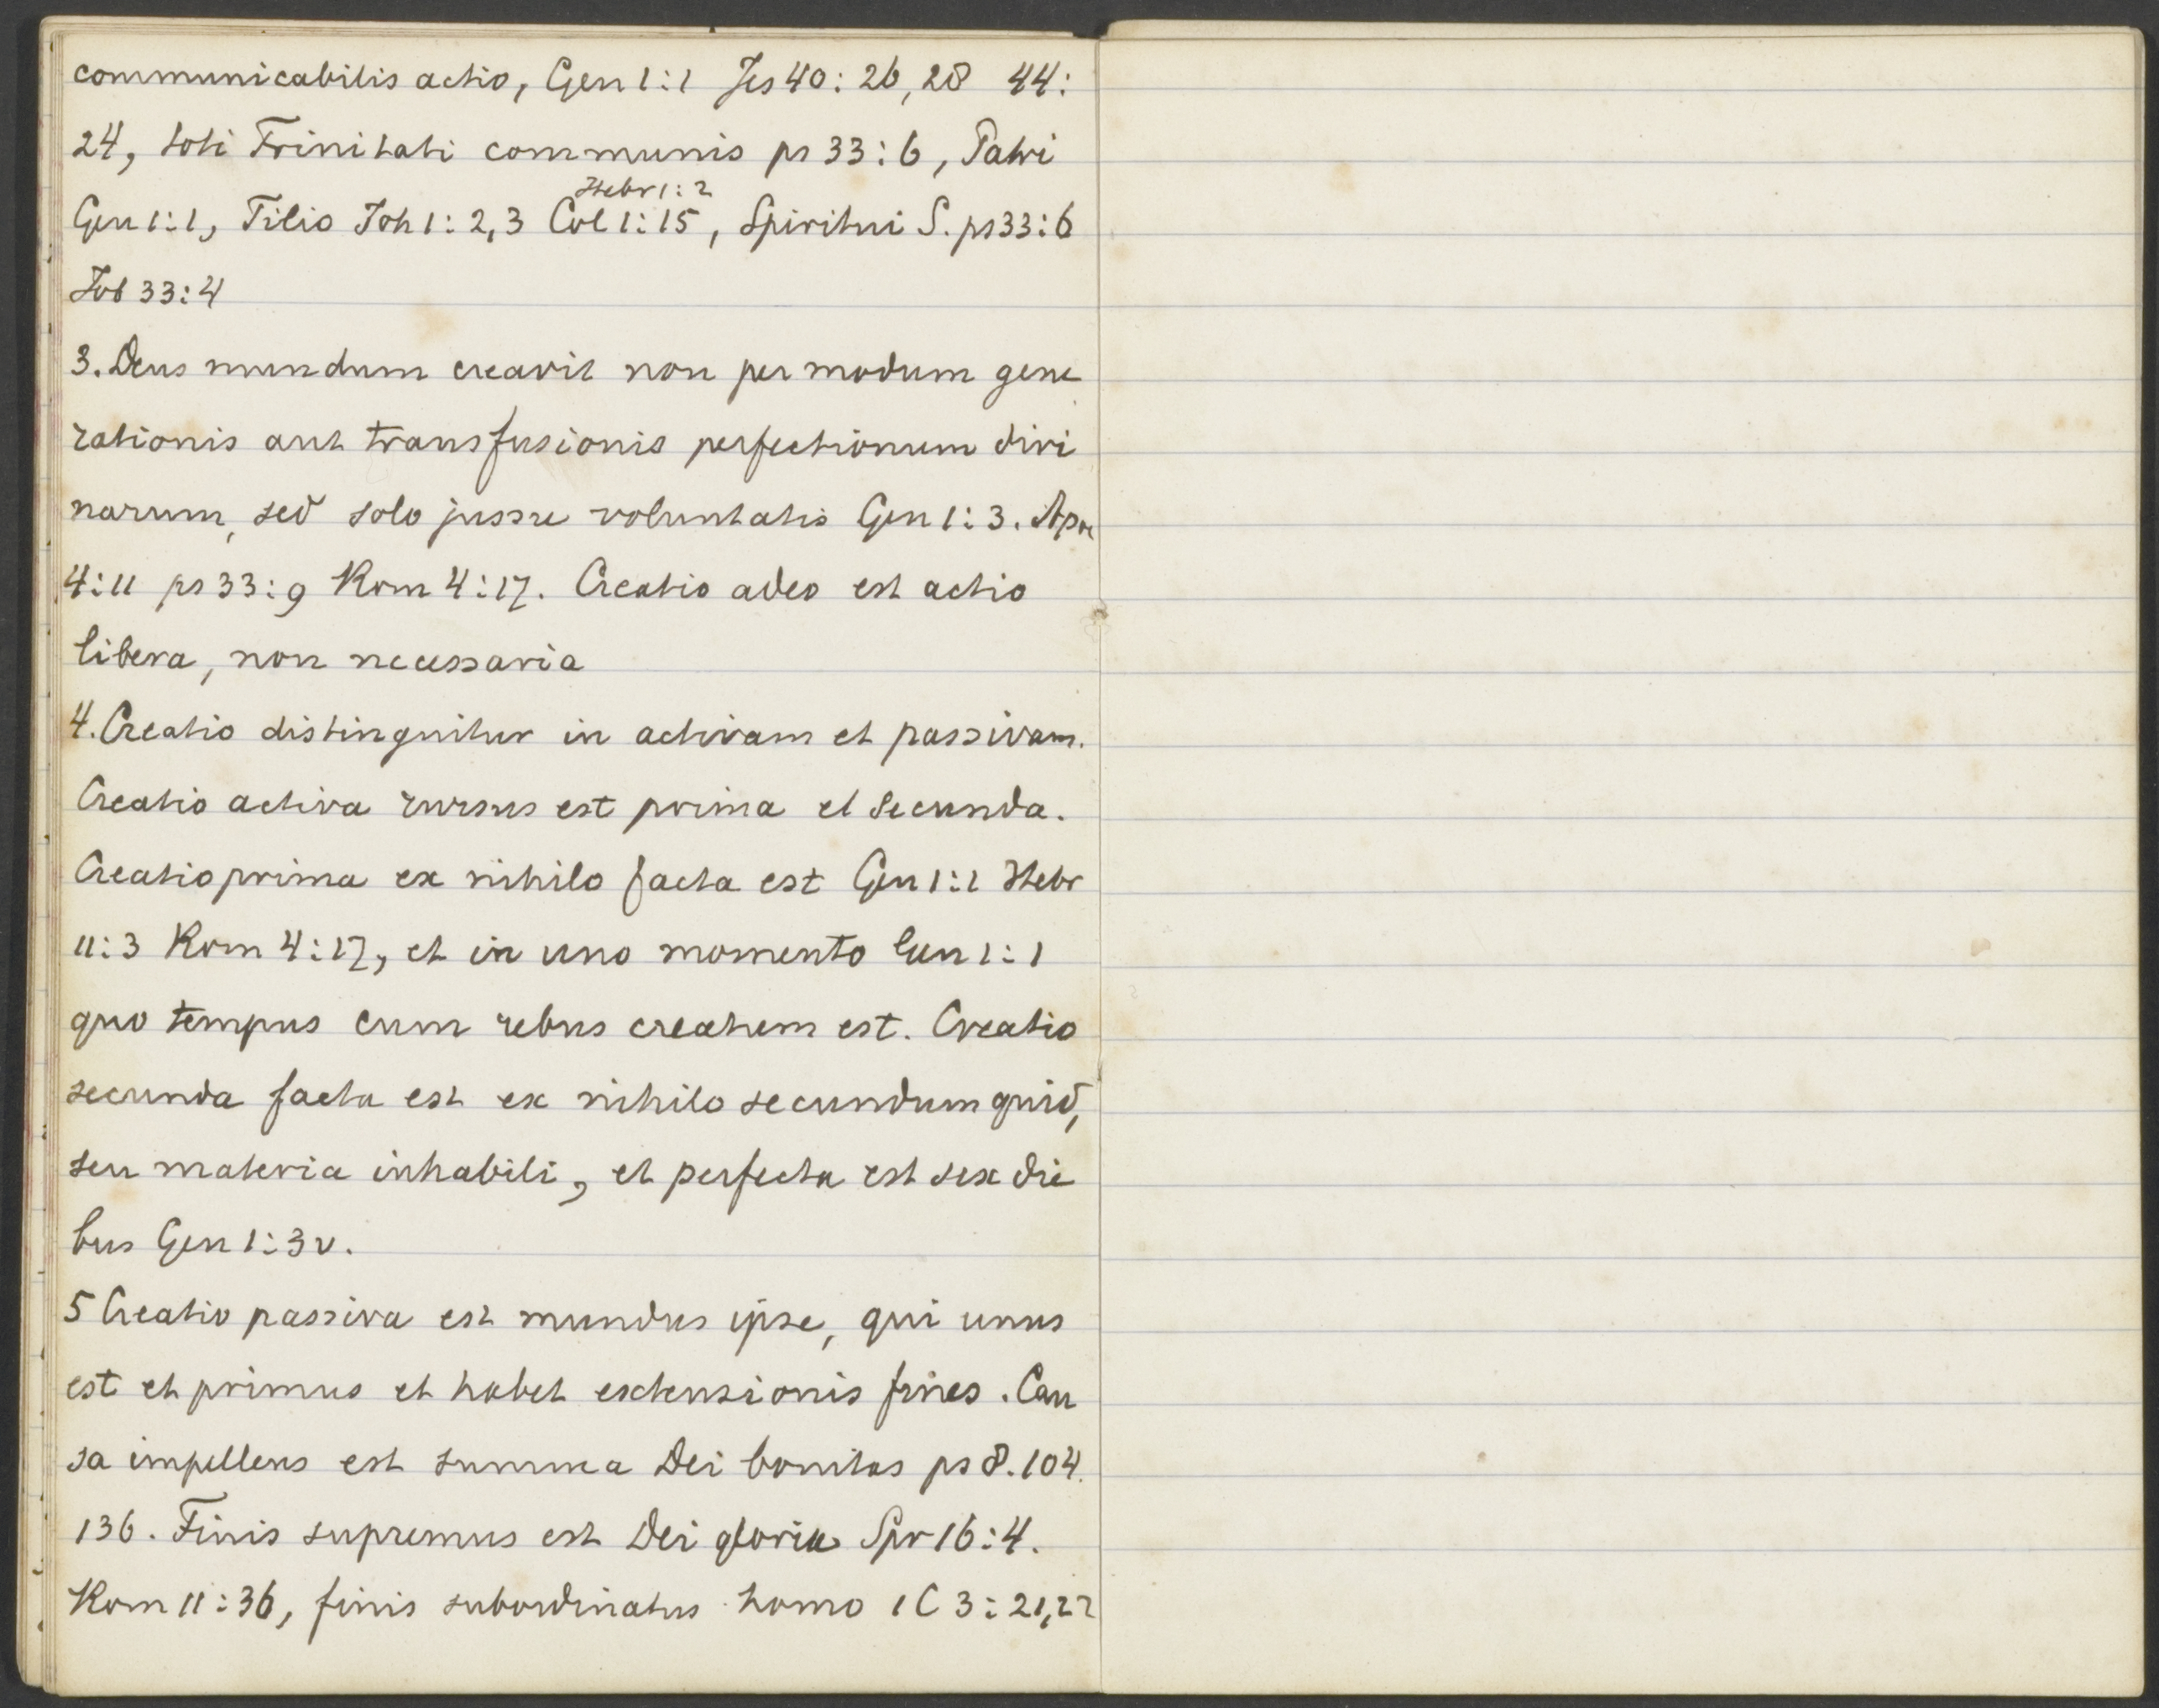 communicabilis actio, Gen 1:1 Jes 40: 26, 28 44:
24, toti Trinitati communis ps 33:6, Patri
Hebr 1:2
Gen 1:1, Filio Joh 1: 2,3 Col 1:15, Spiritui S. ps 33:6
Job 33:4
3. Deus mundum creavit non per modum gene
rationis aut transfusionis perfectionum divi
narum, sed solo jussu voluntatis Gen 1:3. Apoc
4:11 ps 33:9 Rom 4:17. Creatio adeo est actio
libera, non necessaria
4. Creatio distinguitur in activam et passivam.
Creatio activa rursus est prima et secunda.
Creatio prima ex nihilo facta est Gen 1:1 Hebr
11:3 Rom 4:17, et in uno momento Gen 1:1
quo tempus cum rebus creatum est. Creatio
secunda facta est ex nihilo secundum quid,
seu materia inhabili, et perfecta est sex die
bus Gen 1:3v.
5 Creatio passiva est mundus ipse, qui unus
est et primus et habet extensionis fines. Cau
sa impellens est summa Dei bonitas ps 8. 104.
136. Finis supremus est Dei gloria Spr 16:4.
Rom 11:36, finis subordinatus homo 1 C 3:21,22